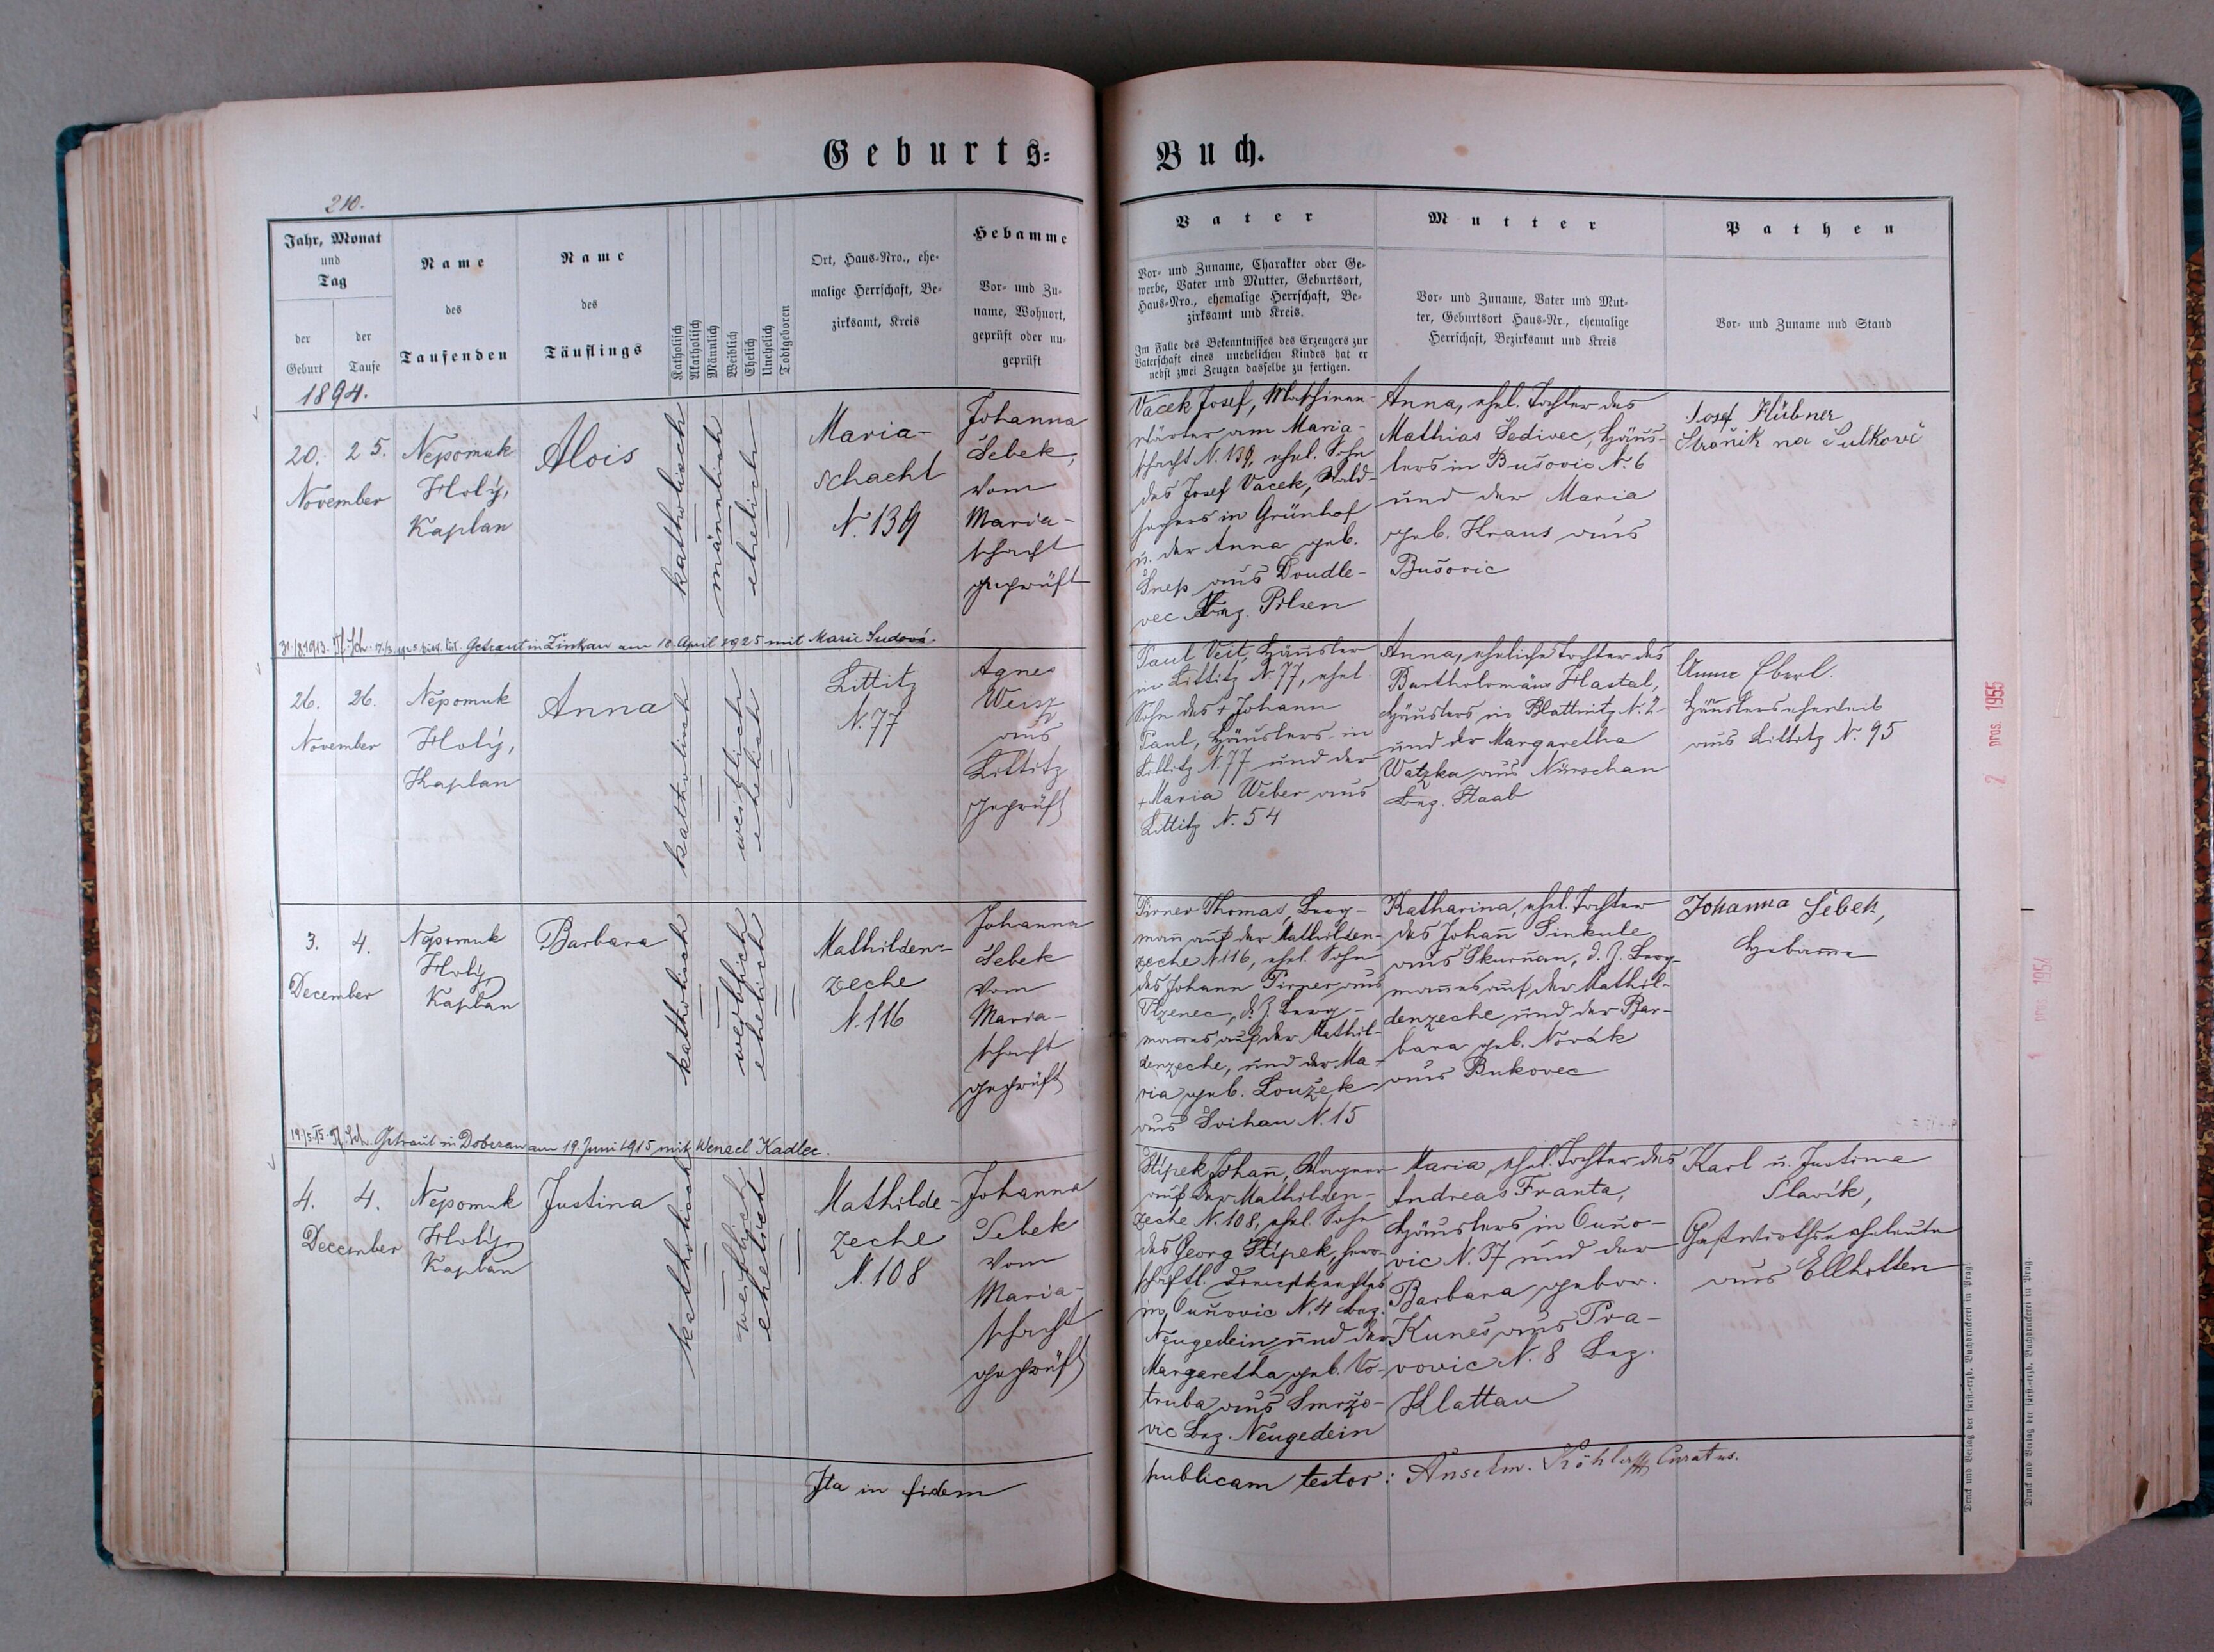 Geburts=
Buch.
210.
Jahr, Monat
und
Tag
der
Geburt
der
Taufe
Name
des
Taufenden
Name
des
Täuflings
Katholisch
Akatholisch
Männlich
Weiblich
Ehelich
Unehelich
Todtgeboren
Ort, Haus-Nro., ehe-
malige Herrschaft, Be-
zirksamt, Kreis
Hebamme
Vor- und Zu-
name, Wohnort,
geprüft oder un-
geprüft
Vater
Vor- und Zuname, Charakter oder Ge-
werbe, Vater und Mutter, Geburtsort,
Haus-Nro., ehemalige Herrschaft, Be-
zirksamt und Kreis.
Im Falle des Bekenntnisses des Erzeugers zur
Vaterschaft eines unehelichen Kindes hat er
nebst zwei Zeugen dasselbe zu fertigen.
Mutter
Vor- und Zuname, Vater und Mut-
ter, Geburtsort Haus-Nr., ehemalige
Herrschaft, Bezirksamt und Kreis
Pathen
Vor- und Zuname und Stand
1894.
20.
November
25.
Nepomuk
Holý,
Kaplan
Alois
katholisch
männlich
ehelich
Maria-
schacht
N. 139
Johanna
Šebek,
vom
Maria-
schacht
geprüft
Vacek Josef, Maschinen-
wärter am Maria-
schacht N. 139, ehel. Sohn
des Josef Vacek, Wald-
hegers in Grünhof
u. der Anna geb.
aus Doudle-
vec Bez. Pilsen
Anna, ehel. Tochter des
Mathias Sedivec, Häus-
lers in Bušovic N. 6
und der Maria
geb. Kraus aus
Bušovic
Josef Hübner
na Sulkově
Getraut in Žinkau am 18. April 1925 mit Marie Sudová.
26.
November
26.
Nepomuk
Holý,
Kaplan
Anna
katholisch
weiblich
ehelich
Littitz
N. 77
Agnes
Weisz
aus
Littitz
geprüft
Paul Veit, Häusler
in Littitz N. 77, ehel.
Sohn des + Johann
Paul, Häuslers in
Littitz N. 77 und der
+ Maria Weber aus
Littitz N. 54
Anna, eheliche Tochter des
Bartholomäus Hastal,
Häuslers in Blattnitz N. 2
und der Margaretha
Watzka aus Nürschan
Bez. Staab
Anna Eberl.
Häuslerseheweib
aus Littitz N. 95
3.
December
4.
Nepomuk
Holý,
Kaplan
Barbara
katholisch
weiblich
ehelich
Mathilden-
zeche
N. 116
Johanna
Šebek
vom
Maria-
schacht
geprüft
Pirner Thomas, Berg-
mañ auf der Mathilden-
zeche N. 116, ehel. Sohn
des Johann Pirner aus
Plzenec, d. Z. Berg-
mannes auf der Mathil-
denzeche, und der Ma-
ria geb. Loužek
aus Svihau N. 15
Katharina, ehel. Tochter
des Johañ Sinkule
aus Skurnan, d. Z. Berg-
mannes auf der Mathil-
denzeche und der Bar-
bara geb. Novák
aus Bukovec
Johanna Šebek,
Hebamme
Getraut in Dobrzan am 19. Juni 1915 mit Wenzel Kadlec.
4.
December
4.
Nepomuk
Holý,
Kaplan
Justina
katholisch
weiblich
ehelich
Mathilde-
zeche
N. 108
Johanna
Šebek
vom
Maria-
schacht
geprüft
Štipek Johañ, Wagner
auf der Mathilden-
zeche N. 108, ehel. Sohn
des Georg Štípek, herr-
schaftl.
in Ouñovic N. 4 Bez.
Neugedein und der
Margaretha geb. Vo-
truba aus Smržo-
vic Bez. Neugedein
Maria, ehel. Tochter des
Andreas Franta,
Häuslers in Ouño-
vic N. 37 und der
Barbara gebor.
Kuneš aus Pra-
vovic N. 8 Bez.
Klattau
Karl u. Justina
Slavík,
Gastwirthseheleute
aus Ellhotten
Ita in fidem
publicam testor: Anselm. Köhler Curatus.
2 pros. 1955
pros. 1954
Druck und Verlag der fürst.-erzb. Buchdruckerei in Prag
Druck und Verlag der fürst.-erzb. Buchdruckerei in Prag